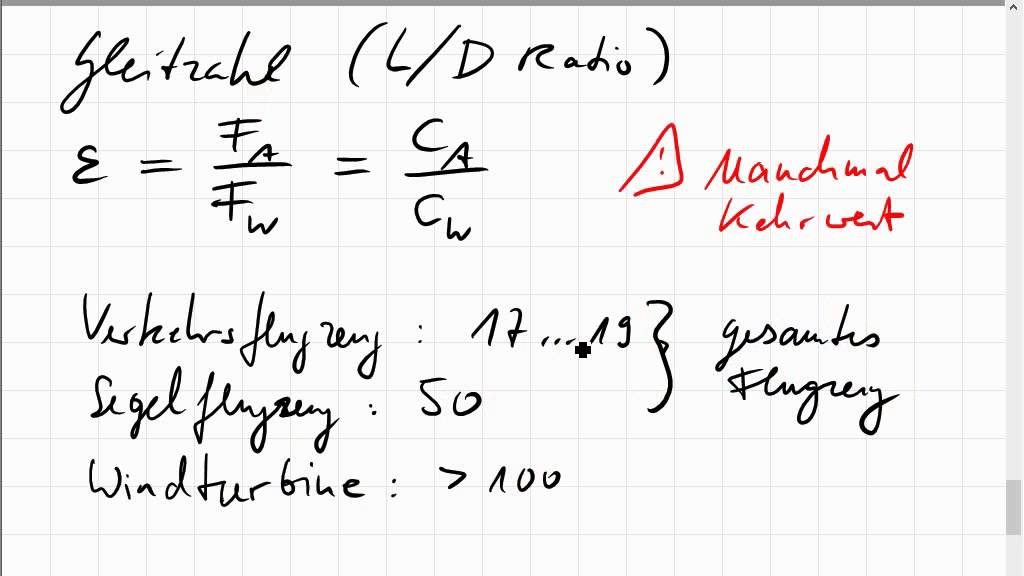 Gleitzahl (L/D Ratio)
ε = F_A / F_W = C_A / C_W
! Manchmal
Kehrwert
Verkehrsflugzeug : 17...19 } gesamtes
Segelflugzeug : 50 Flugzeug
Windturbine : > 100